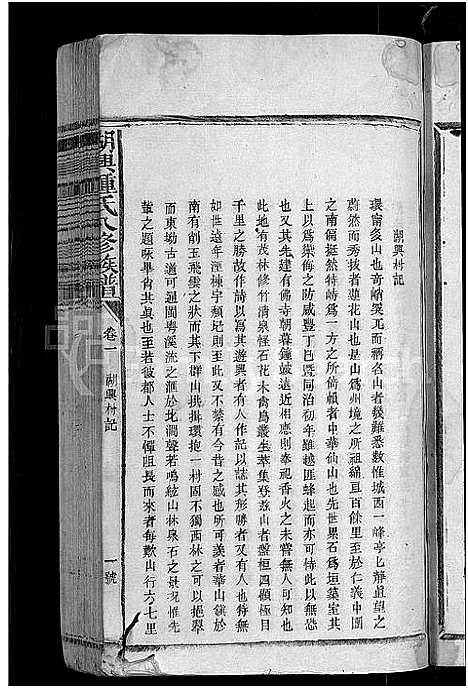 湖興村記
環甯多山也奇峭突兀而稱名山者幾難悉數惟城西一峰亭亡靜直望之
蔚然而秀拔者蓮花山也是山爲州境之所祖綿亘百餘里至於仁義中團
之南隅挺然特峙爲一方之所倚賴者中華仙山也先世累石爲垣築室其
上以爲禦侮之防咸豐丁巳暨同治初年雖越匪蜂起而亦可恃以無恐
也又其先建有佛寺朝暮鐘皷遠近相應則奉祀香火之未嘗無人可知也
此地有茂林修竹清泉怪石花木禽鳥叢生萃集登茲山者盤桓四顧極目
千里之勝故作詩以寫其遊興者有人作記以誌其形勝者又有人也特其
如世遠年湮棟宇頹圮則至此又不禁有今昔之感也所可羡者華山鎮於
南有削玉飛雲之狀而其下群山拱揖環抱一村固不獨西林之可以挹翠
而東坳古道可通閩粵溪流之滙於北澗聲若鳴絃山林泉石之景况惟先
輩之題咏畢肖其眞也至若彼都人士不憚阻長而來者每數山行六七里
湖興鍾氏八修族譜
卷一
湖興村記
一號